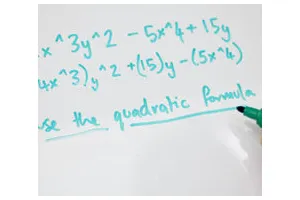 x^3y^2 - 5x^4 + 15y
4x^3)y^2 + (15)y - (5x^4)
use the quadratic formula